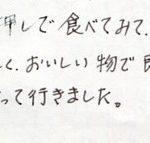 押しで食べてみて.
く.おいしい物で
って行きました。